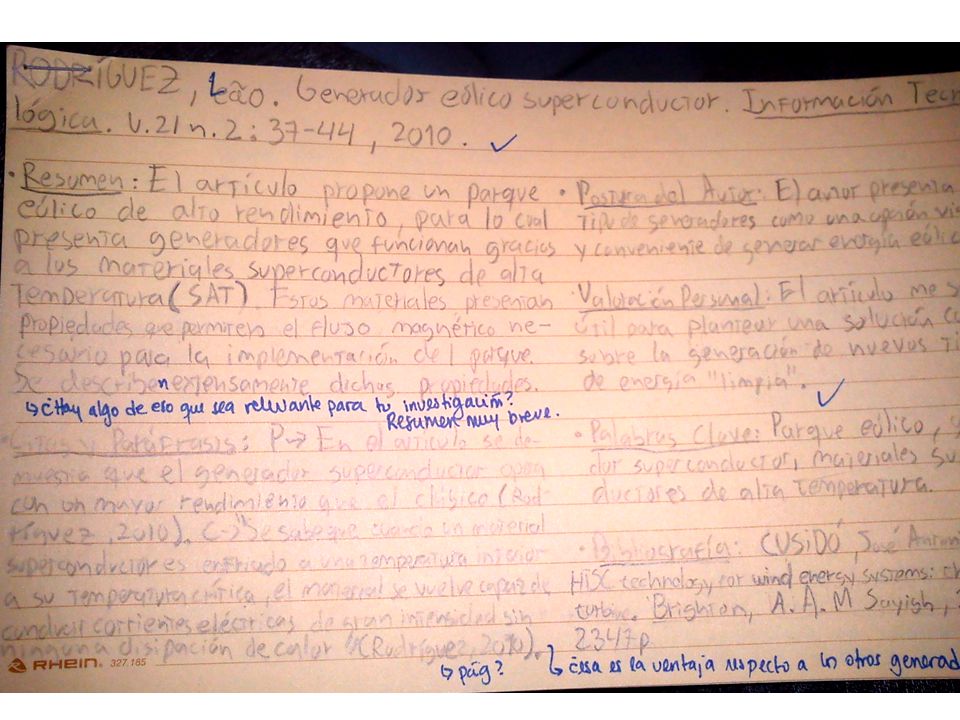 RODRÍGUEZ, Leão. Generador eólico superconductor. Información Tecno
lógica. V.21 n.2: 37-44, 2010.
• Resumen: El artículo propone un parque
eólico de alto rendimiento, para lo cual
presenta generadores que funcionan gracias
a los materiales superconductores de alta
temperatura (SAT). Estos materiales presentan
propiedades que permiten el flujo magnético ne-
cesario para la implementación del parque.
Se describen extensamente dichas propiedades.
↳ ¿Hay algo de eso que sea relevante para tu investigación?
Resumen muy breve.
• Citas y Paráfrasis: P→ En el artículo se de-
muestra que el generador superconductor opera
con un mayor rendimiento que el clásico (Rod-
ríguez, 2010). C→ "Se sabe que cuando un material
superconductor es enfriado a una temperatura inferior
a su temperatura crítica, el material se vuelve capaz de
conducir corrientes eléctricas de gran intensidad sin
ninguna disipación de calor" (Rodríguez, 2010).
↳ pág?
↳ ¿esa es la ventaja respecto a los otros generad
• Postura del Autor: El autor presenta
tipo de generadores como una opción
y conveniente de generar energía eólic
• Valoración Personal: El artículo me
útil para plantear una solución
sobre la generación de nuevos
de energía "limpia".
• Palabras Clave: Parque eólico,
dor superconductor, materiales su
ductores de alta temperatura.
• Bibliografía: CUSIDÓ, José Anton
HTSC technology for wind energy systems:
turbine. Brighton, A.A.M Sayigh,
2347p.
RHEIN. 327.185